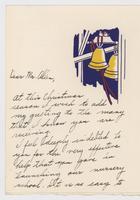 Dear Mr. Allen,
At this Christmas
season I wish to add
my greeting to the many
that I know you are
receiving.
I feel deeply indebted to
you for the very effective
help that you gave in
launching our nursery
school. It is so easy to